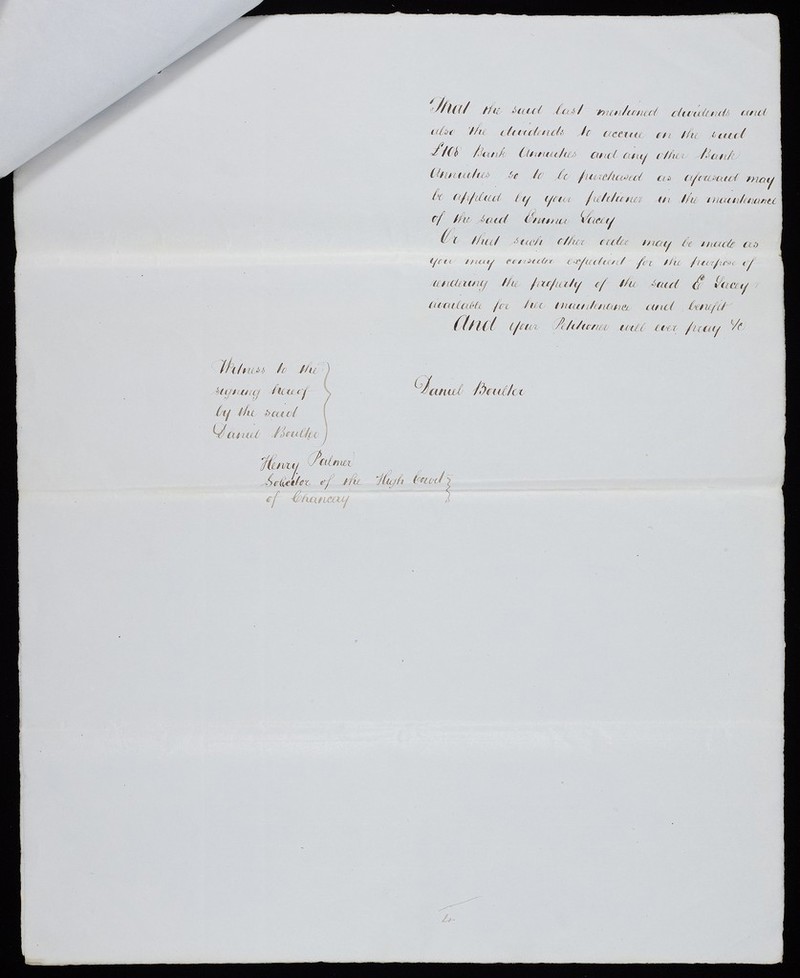 That the said last mentioned dividends and
also the dividends to accrue on the said
£108 Bank Annuities and any other Bank
Annuities so to be purchased as aforesaid may
be applied by your petitioner in the maintenance
of the said Emma Lacey
Or that such other order may be made as
you may consider expedient for the purpose of
rendering the property of the said E Lacey
available for her maintenance and benefit
And your Petitioner will ever pray &c
Daniel Boulter
Witness to the
signing hereof
by the said
Daniel Boulter
Henry Palmer
Solicitor of the High Court
of Chancery